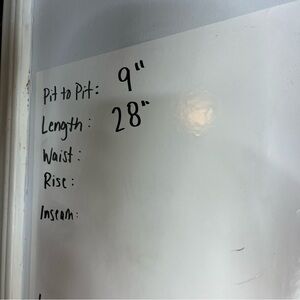 Pit to Pit: 9"
Length: 28"
Waist:
Rise:
Inseam: